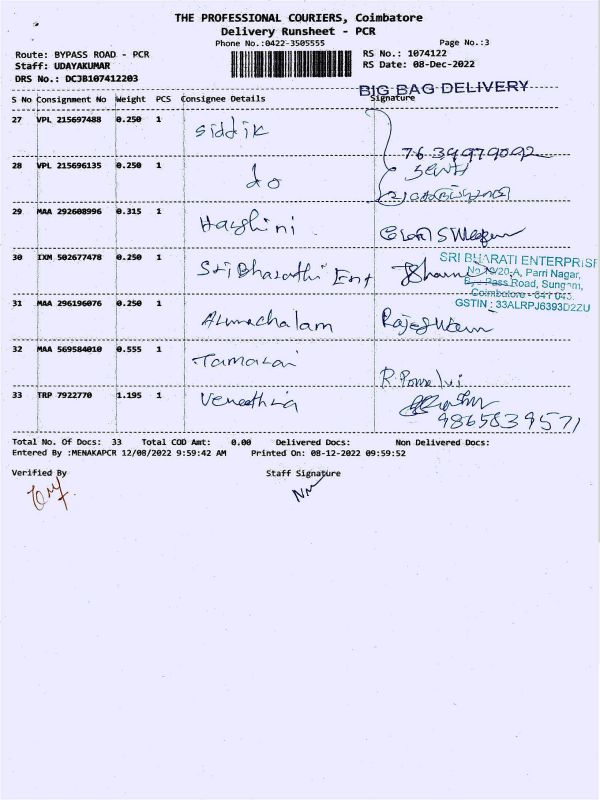 THE PROFESSIONAL COURIERS, Coimbatore
Delivery Runsheet - PCR
Phone No.:0422-3505555
Page No.:3
Route: BYPASS ROAD - PCR
RS No.: 1074122
Staff: UDAYAKUMAR
RS Date: 08-Dec-2022
DRS No.: DCJB107412203
BIG BAG DELIVERY
S No Consignment No Weight PCS Consignee Details Signature
27 VPL 215697488 0.250 1 Siddik
7639979092
28 VPL 215696135 0.250 1 do
29 MAA 292608996 0.315 1 Harshini
30 IXM 502677478 0.250 1 Sri Bharathi Ent
SRI BHARATI ENTERPRIS
No 19/20-A, Parri Nagar,
Bye Pass Road, Sungam,
Coimbatore - 641 045.
GSTIN : 33ALRPJ6393D2ZU
31 MAA 296196076 0.250 1 Arunachalam Rajeswari
32 MAA 569584010 0.555 1 Tamarai
33 TRP 7922770 1.195 1
9865839571
Total No. Of Docs: 33 Total COD Amt: 0.00 Delivered Docs: Non Delivered Docs:
Entered By :MENAKAPCR 12/08/2022 9:59:42 AM Printed On: 08-12-2022 09:59:52
Verified By Staff Signature